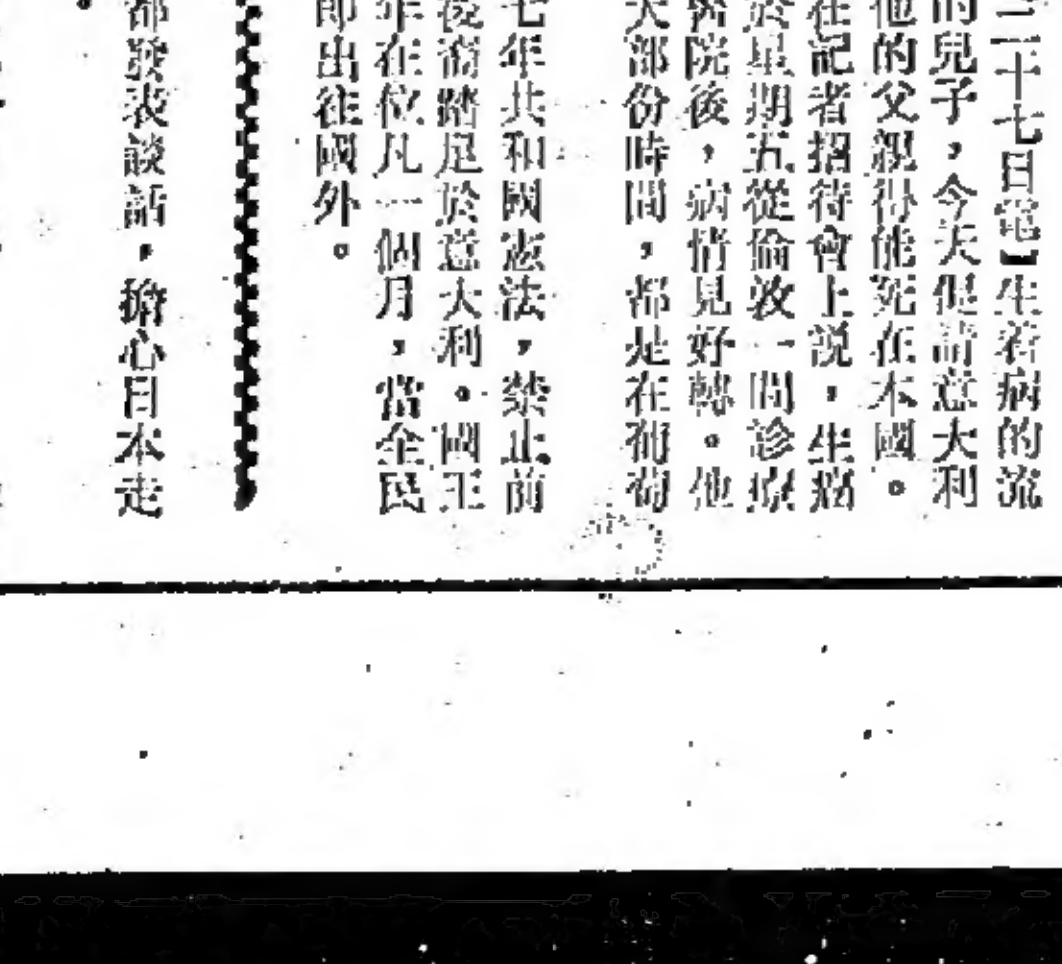 二十七日電】生着病的流
的兒子，今天促請意大利
他的父親得能死在本國。
在記者招待會上説，生病
於星期五從倫敦一間診療
院後，病情見好轉。他
大部份時間，都是在葡萄
七年共和國憲法，禁止前
後裔踏足於意大利。國王
年在位凡一個月，當全民
即出往國外。
都發表談話，擔心日本走
。